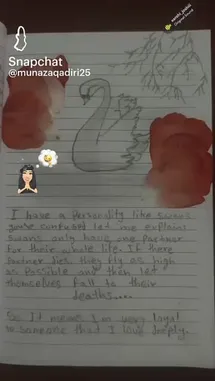 Snapchat
@munazaqadiri25
I have a Personality like swans
you're confused let me explain
swans only have one partner
for there whole life. If there
Partner dies, they fly as high
as Possible and then let
themselves fall to their
deaths....
So it means I'm very loyal
to someone that I love deeply.